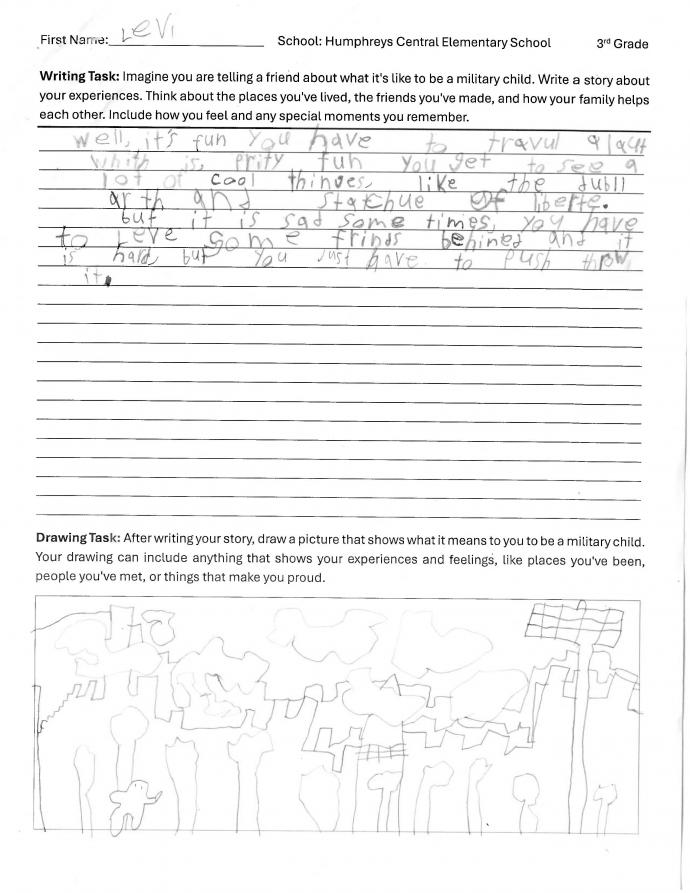 First Name: LeVi School: Humphreys Central Elementary School 3rd Grade
Writing Task: Imagine you are telling a friend about what it's like to be a military child. Write a story about
your experiences. Think about the places you've lived, the friends you've made, and how your family helps
each other. Include how you feel and any special moments you remember.
well, it's fun You have to travul
whith is, prity fun You get to see a
lot of cool thinges, like the dubll
arth and statchue OF liberte.
but it is sad some times, you have
to Leve some frinds behined and it
is hard, but you Just have to Push throw
it.
Drawing Task: After writing your story, draw a picture that shows what it means to you to be a military child.
Your drawing can include anything that shows your experiences and feelings, like places you've been,
people you've met, or things that make you proud.